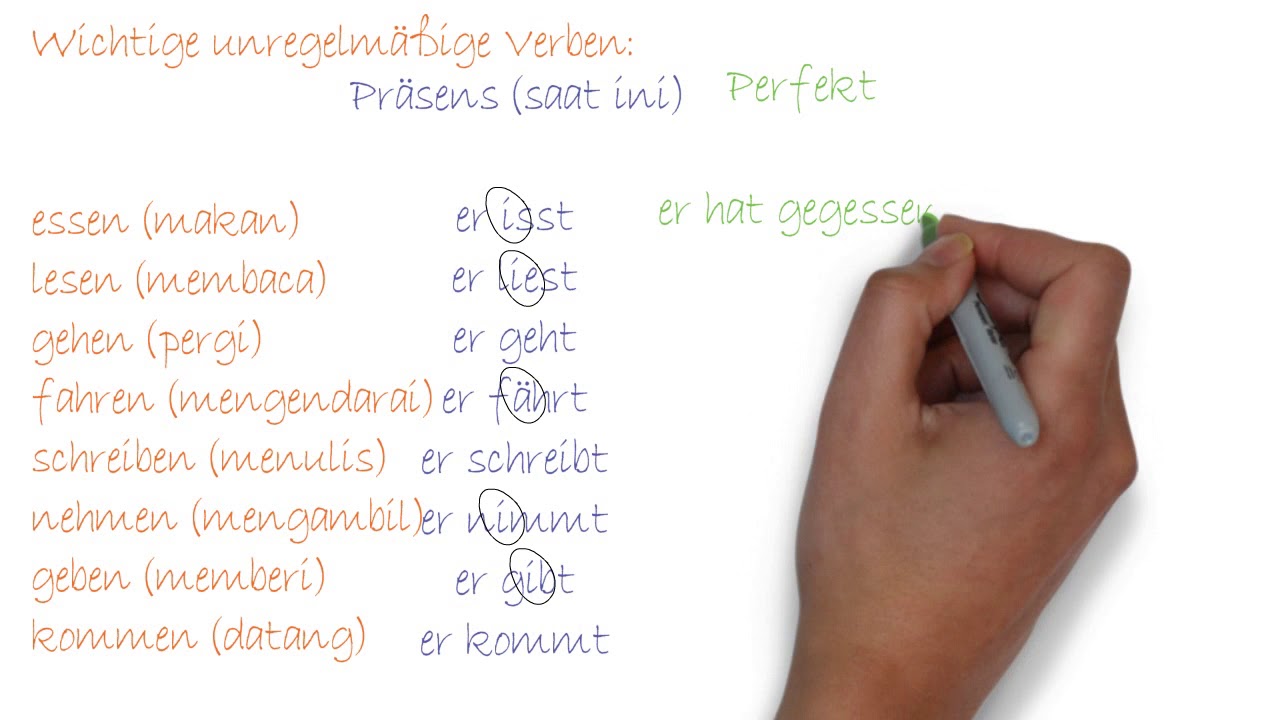 Wichtige unregelmäßige Verben:
Präsens (saat ini) Perfekt
essen (makan) er isst er hat gegessen
lesen (membaca) er liest
gehen (pergi) er geht
fahren (mengendarai) er fährt
schreiben (menulis) er schreibt
nehmen (mengambil) er nimmt
geben (memberi) er gibt
kommen (datang) er kommt